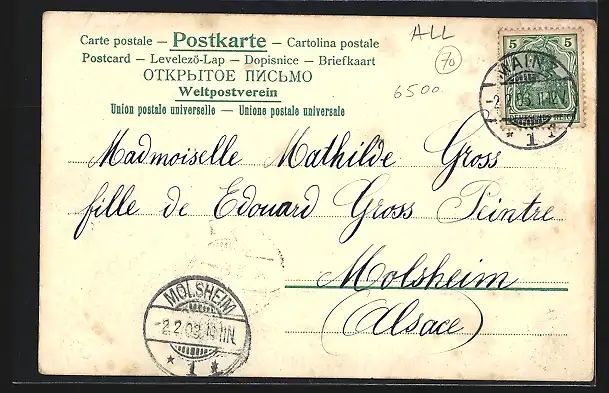 Carte postale — Postkarte — Cartolina postale
Postcard — Levelező-Lap — Dopisnice — Briefkaart
ОТКРЫТОЕ ПИСЬМО
Weltpostverein
Union postale universelle — Unione postale universale
ALL
70
6500
5 5
MAINZ
1
Madmoiselle Mathilde Gross
fille de Edouard Gross Peintre
Molsheim
(Alsace)
MOLSHEIM
1